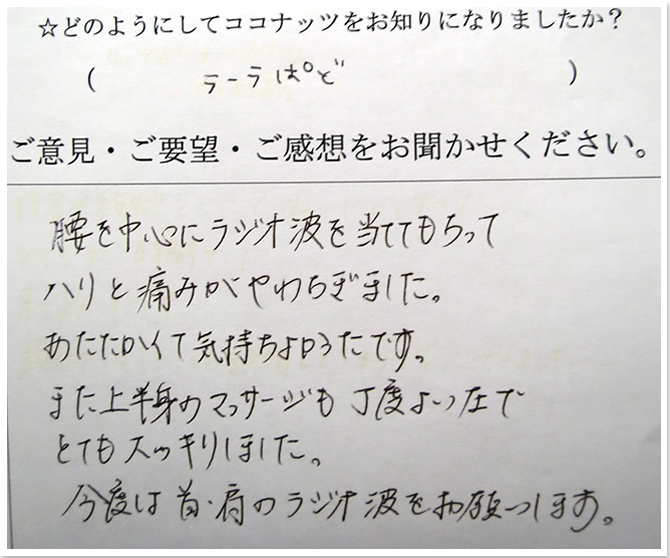 ☆どのようにしてココナッツをお知りになりましたか？
( ラーラぱど )
ご意見・ご要望・ご感想をお聞かせください。
腰を中心にラジオ波を当ててもらって
ハリと痛みがやわらぎました。
あたたかくて気持ちよかったです。
また上半身のマッサージも丁度よい圧で
とてもスッキリしました。
今度は首・肩のラジオ波をお願いします。